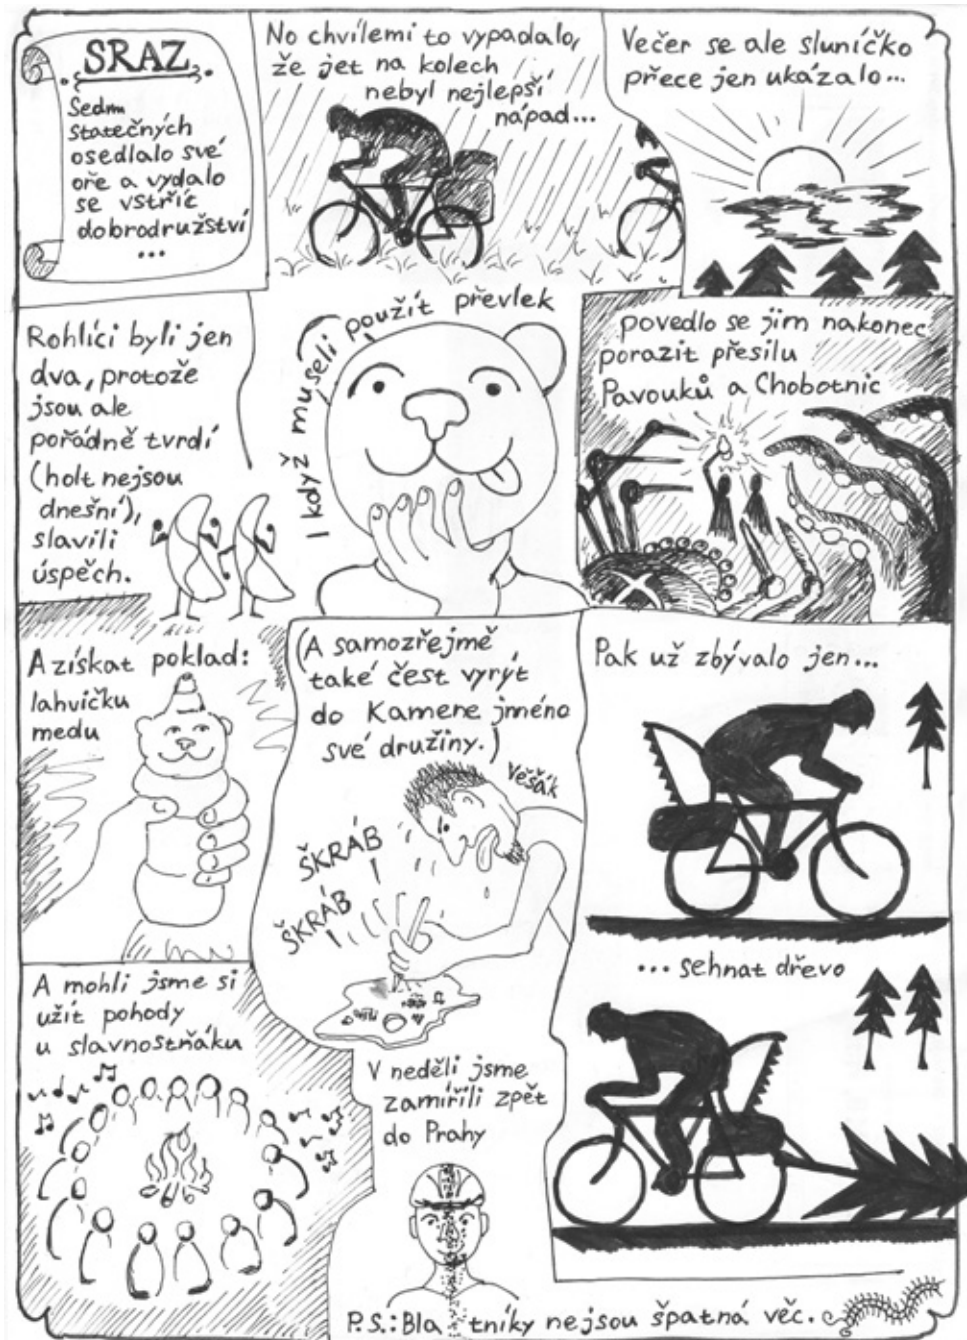 SRAZ
Sedm
statečných
osedlalo své
oře a vydalo
se vstříc
dobrodružství
...
No chvílemi to vypadalo,
že jet na kolech
nebyl nejlepší
nápad...
Večer se ale sluníčko
přece jen ukázalo...
Rohlíci byli jen
dva, protože
jsou ale
pořádně tvrdí
(holt nejsou
dnešní),
slavili
úspěch.
I když museli použít převlek
povedlo se jim nakonec
porazit přesilu
Pavouků a Chobotnic
A získat poklad:
lahvičku
medu
(A samozřejmě
také čest vyrýt
do Kamene jméno
své družiny.)
Věšák
ŠKRÁB
!
ŠKRÁB
!
Pak už zbývalo jen...
... sehnat dřevo
A mohli jsme si
užít pohody
u slavnostňáku
V neděli jsme
zamířili zpět
do Prahy
P.S.: Bla tníky nejsou špatná věc.